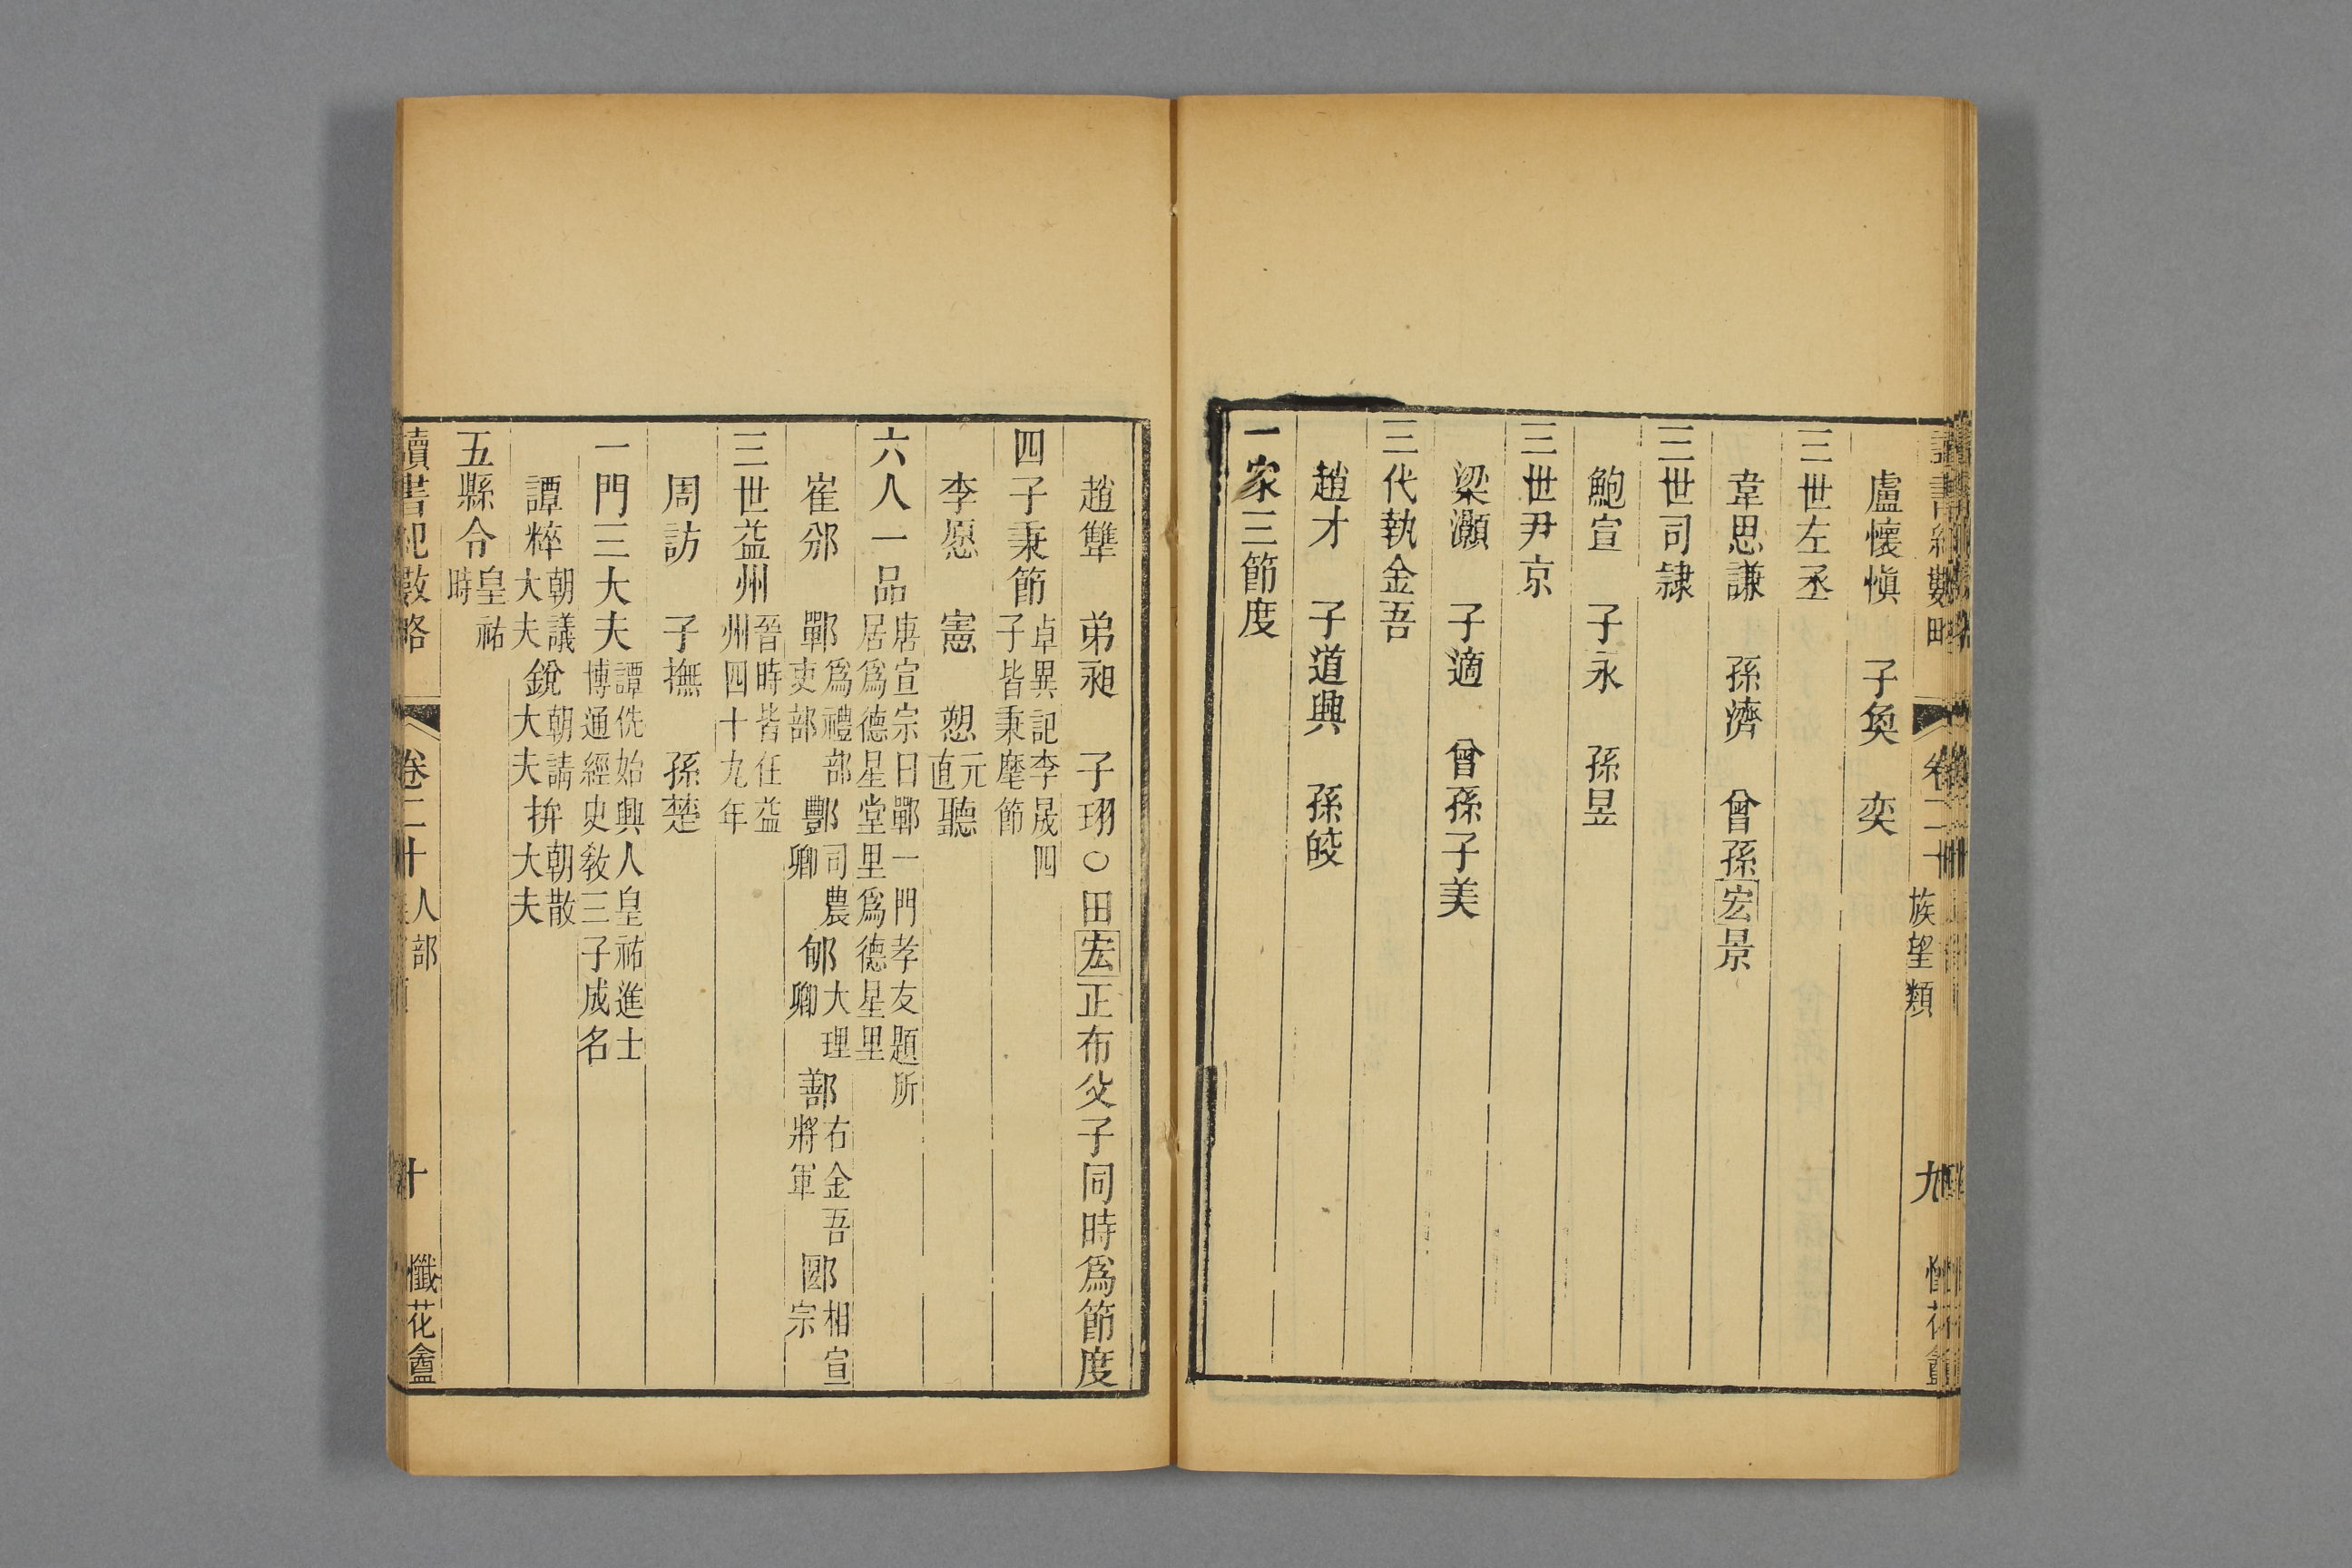 讀書紀數略 卷二十 族望類 九 懺花盦
盧懷愼 子奐 奕
三世左丞
韋思謙 孫濟 曾孫宏景
三世司隷
鮑宣 子永 孫昱
三世尹京
梁灝 子適 曾孫子美
三代執金吾
趙才 子道興 孫皎
一家三節度
趙犨 弟昶 子珝○田宏正布父子同時爲節度
四子秉節 卓異記李晟四子皆秉麾節
李愿 憲 愬 元直 聽
六人一品 唐宣宗曰鄲一門孝友題所居爲德星堂里爲德星里
崔邠 鄲 爲禮部吏部 酆 司農卿 郇 大理卿 鄯 右金吾將軍 郾 相宣宗
三世益州 晉時皆任益州四十九年
周訪 子撫 孫楚
一門三大夫 譚侁始興人皇祐進士博通經史敎三子成名
譚粹 朝議大夫 銳 朝請大夫 拚 朝散大夫
五縣令 皇祐時
讀書紀數略 卷二十 人部 十 懺花盦